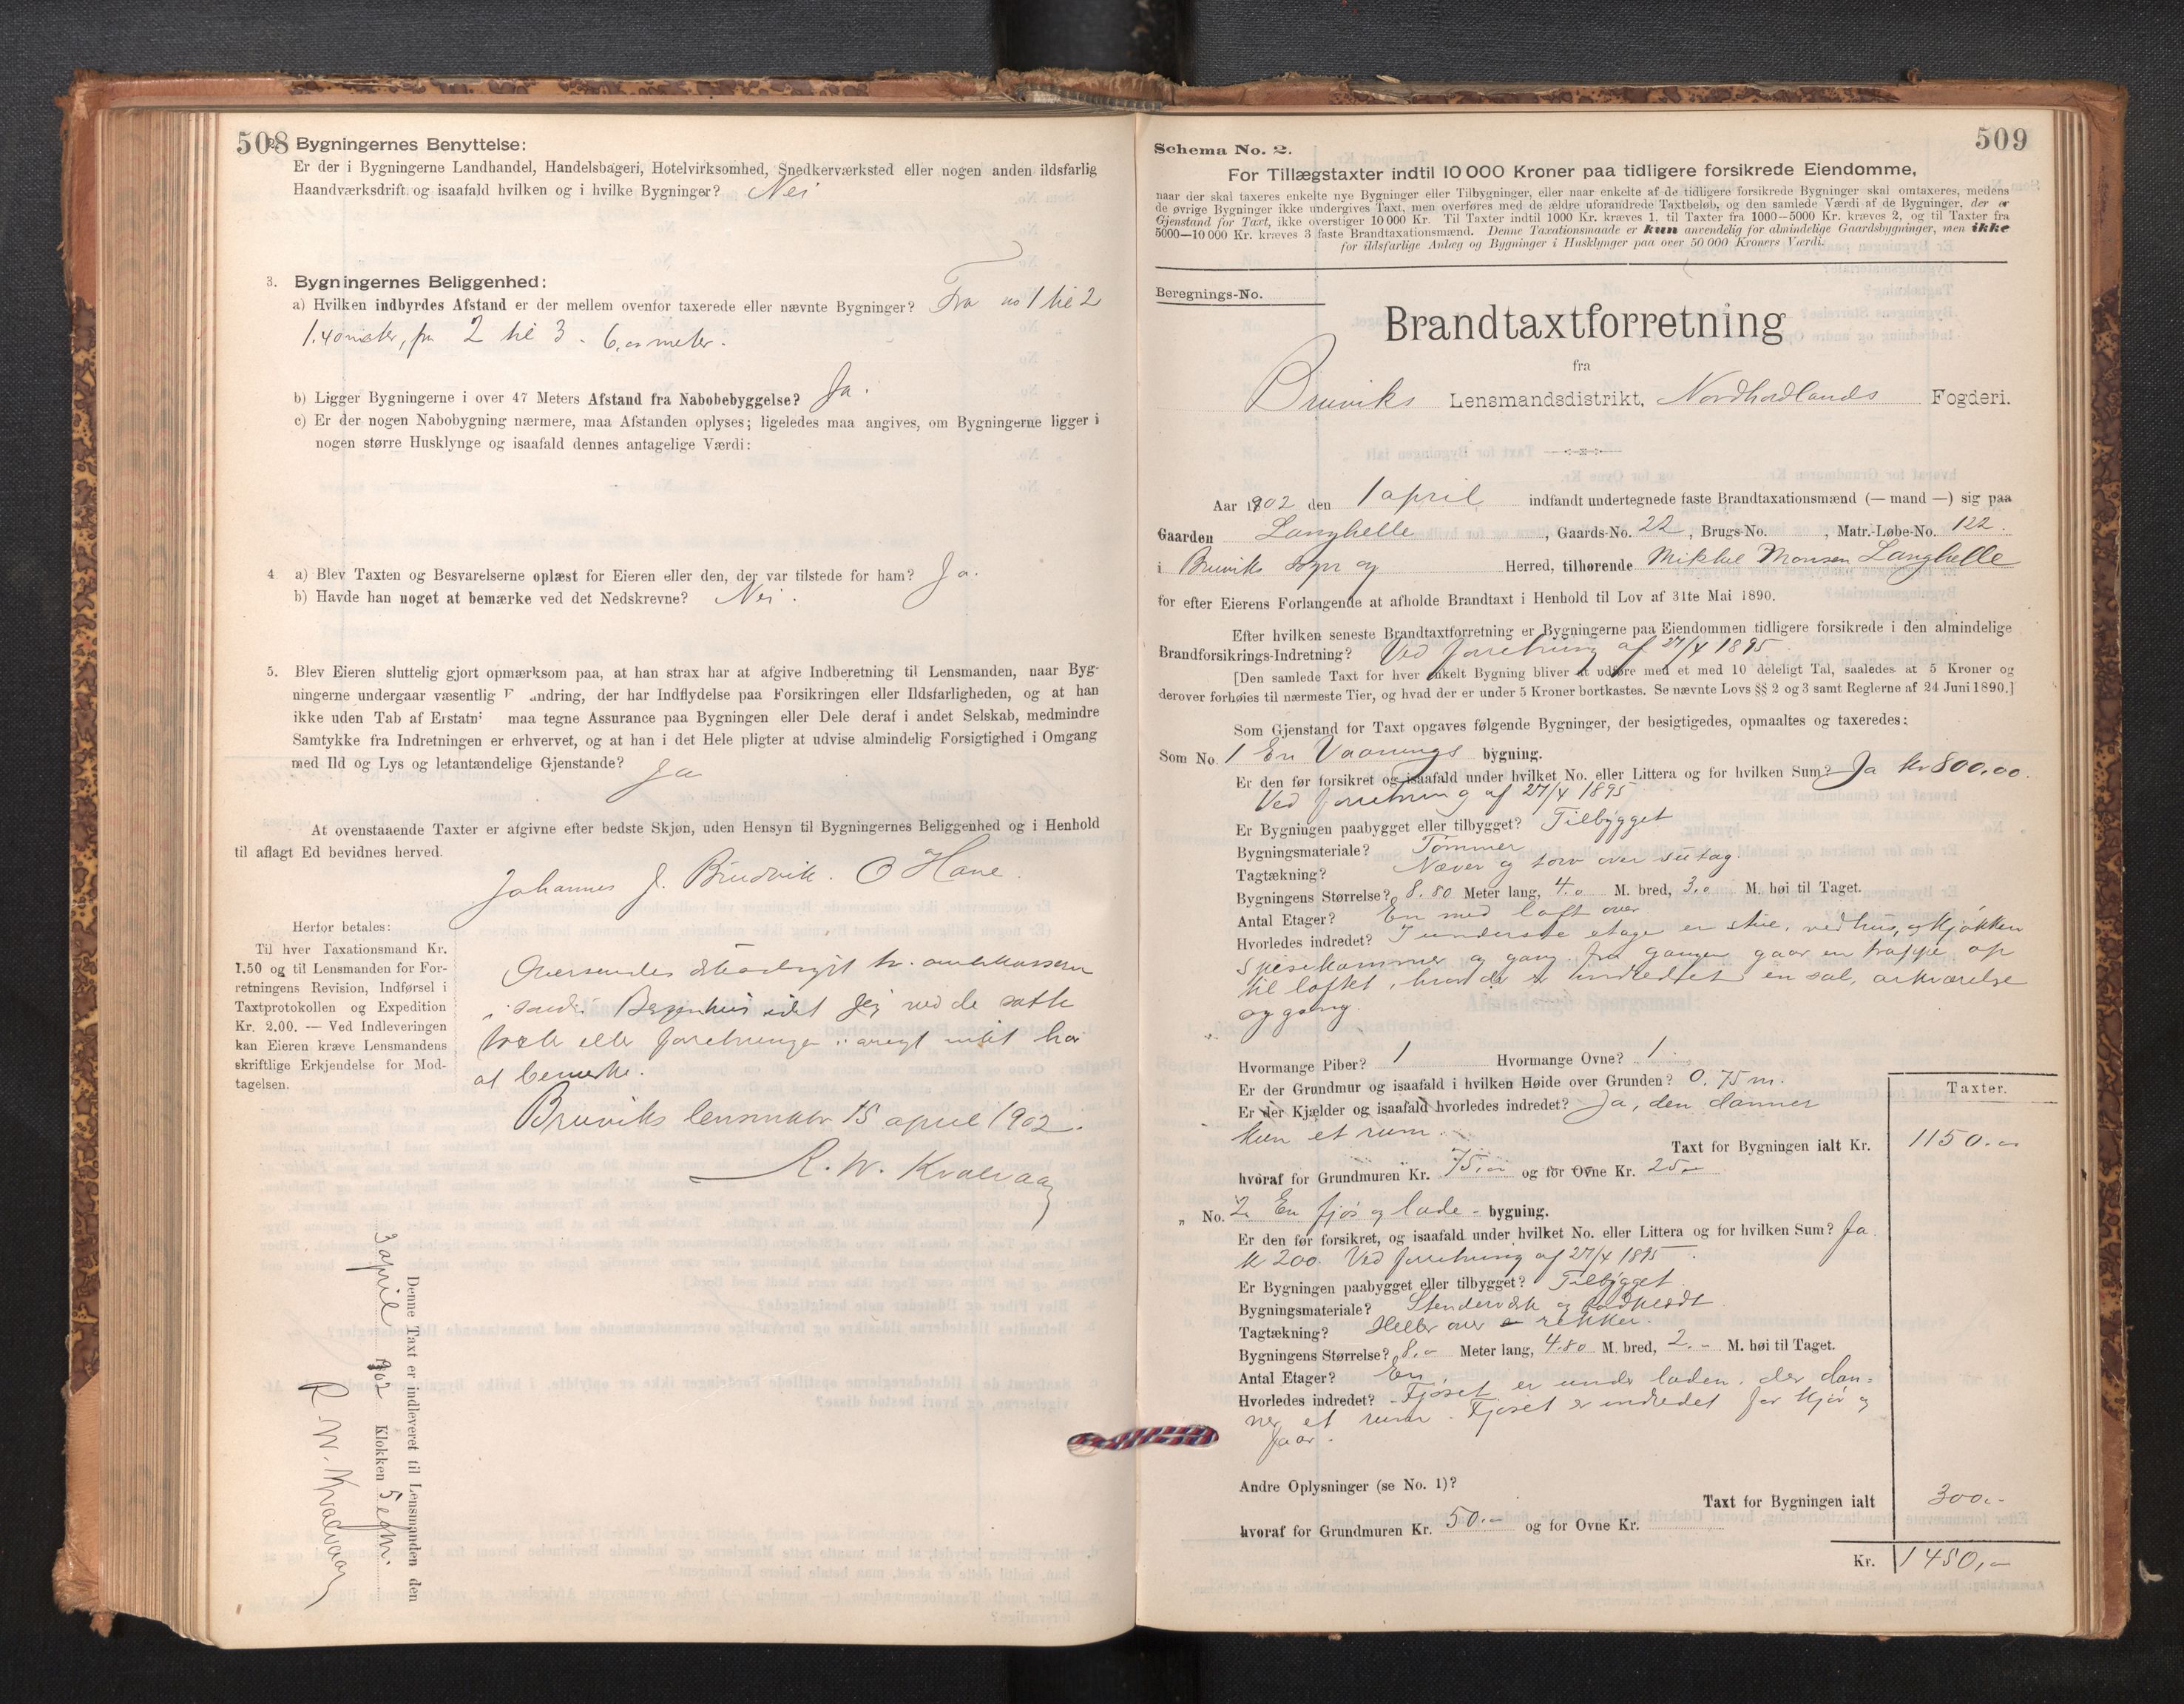 508
2. Bygningernes Benyttelse:
Er der i Bygningerne Landhandel, Handelsbageri, Hotelvirksomhed, Snedkerværksted eller nogen anden ildsfarlig
Haandværksdrift og isaafald hvilken og i hvilke Bygninger? Nei
3. Bygningernes Beliggenhed:
a) Hvilken indbyrdes Afstand er der mellem ovenfor taxerede eller nævnte Bygninger? Fra no 1 til 2
1.40 meter, fra 2 til 3. 6,00 meter.
b) Ligger Bygningerne i over 47 Meters Afstand fra Nabobebyggelse? Ja.
c) Er der nogen Nabobygning nærmere, maa Afstanden oplyses; ligeledes maa angives, om Bygningerne ligger i
nogen større Husklynge og isaafald dennes antagelige Værdi:
4. a) Blev Taxten og Besvarelserne oplæst for Eieren eller den, der var tilstede for ham? Ja.
b) Havde han noget at bemærke ved det Nedskrevne? Nei.
5. Blev Eieren sluttelig gjort opmærksom paa, at han strax har at afgive Indberetning til Lensmanden, naar Byg-
ningerne undergaar væsentlig F andring, der har Indflydelse paa Forsikringen eller Ildsfarligheden, og at han
ikke uden Tab af Erstatn maa tegne Assurance paa Bygningen eller Dele deraf i andet Selskab, medmindre
Samtykke fra Indretningen er erhvervet, og at han i det Hele pligter at udvise almindelig Forsigtighed i Omgang
med Ild og Lys og letantændelige Gjenstande? Ja
At ovenstaaende Taxter er afgivne efter bedste Skjøn, uden Hensyn til Bygningernes Beliggenhed og i Henhold
til aflagt Ed bevidnes herved.
Johannes J. Bruvik. O Hane.
Herfor betales:
Til hver Taxationsmand Kr.
1.50 og til Lensmanden for For-
retningens Revision, Indførsel i
Taxtprotokollen og Expedition
Kr. 2.00. — Ved Indleveringen
kan Eieren kræve Lensmandens
skriftlige Erkjendelse for Mod-
tagelsen.
Oversendes
Bergenhus idet jeg ved de satte
taxter eller forretningen intet har
at bemerke.
Bruviks lensmktr 15 april 1902.
R. W. Kvalvaag
Denne Taxt er indleveret til Lensmanden den
3 april 1902 Klokken 5 efm.
R. W. Kvalvaag
509
Schema No. 2.
For Tillægstaxter indtil 10 000 Kroner paa tidligere forsikrede Eiendomme,
naar der skal taxeres enkelte nye Bygninger eller Tilbygninger, eller naar enkelte af de tidligere forsikrede Bygninger skal omtaxeres, medens
de øvrige Bygninger ikke undergives Taxt, men overføres med de ældre uforandrede Taxtbeløb, og den samlede Værdi af de Bygninger, der er
Gjenstand for Taxt, ikke overstiger 10 000 Kr. Til Taxter indtil 1000 Kr. kræves 1, til Taxter fra 1000—5000 Kr. kræves 2, og til Taxter fra
5000—10 000 Kr. kræves 3 faste Brandtaxationsmænd. Denne Taxationsmaade er kun anvendelig for almindelige Gaardsbygninger, men ikke
for ildsfarlige Anlæg og Bygninger i Husklynger paa over 50 000 Kroners Værdi.
Beregnings-No.
Brandtaxtforretning
fra
Bruviks Lensmandsdistrikt, Nordhordlands Fogderi.
Aar 1902 den 1 april indfandt undertegnede faste Brandtaxationsmænd (— mand —) sig paa
Gaarden Langhelle, Gaards-No. 22, Brugs-No. , Matr.-Løbe-No. 122.
i Bruviks sogn og Herred, tilhørende Mikkel Monsen Langhelle
for efter Eierens Forlangende at afholde Brandtaxt i Henhold til Lov af 31te Mai 1890.
Efter hvilken seneste Brandtaxtforretning er Bygningerne paa Eiendommen tidligere forsikrede i den almindelige
Brandforsikrings-Indretning? Ved forretning af 27/4 1895
[Den samlede Taxt for hver enkelt Bygning bliver at udføre med et med 10 deleligt Tal, saaledes at 5 Kroner og
derover forhøies til nærmeste Tier, og hvad der er under 5 Kroner bortkastes. Se nævnte Lovs §§ 2 og 3 samt Reglerne af 24 Juni 1890.]
Som Gjenstand for Taxt opgaves følgende Bygninger, der besigtigedes, opmaaltes og taxeredes:
Som No. 1 En Vaanings bygning.
Er den før forsikret og isaafald under hvilket No. eller Littera og for hvilken Sum? Ja kr 800,00.
Ved forretning af 27/4 1895
Er Bygningen paabygget eller tilbygget? Tilbygget
Bygningsmateriale? Tømmer
Tagtækning? Næver og torv over sutag.
Bygningens Størrelse? 8.80 Meter lang, 4.0 M. bred, 3.0 M. høi til Taget.
Antal Etager? En med loft over
Hvorledes indredet? I underste etage er stue, vedhus, og kjøkken
spisekammer og gang. fra gangen gaar en trappe op
til loftet, hvor der er indredet en sal, arkværelse
og gang.
Hvormange Piber? 1 Hvormange Ovne? 1
Er der Grundmur og isaafald i hvilken Høide over Grunden? 0.75 m.
Er der Kjælder og isaafald hvorledes indredet? Ja, den danner
kun et rum.
Taxter.
Taxt for Bygningen ialt Kr. 1150.00
hvoraf for Grundmuren Kr. 75,00 og for Ovne Kr. 25,00
" No. 2 En fjøs og lade - bygning.
Er den før forsikret, og isaafald under hvilket No. eller Littera og for hvilken Sum? Ja
kr 200. Ved forretning af 27/4 1895.
Er Bygningen paabygget eller tilbygget? Tilbygget.
Bygningsmateriale? Stenderverk og bordklædt
Tagtækning? Heller over rekker.
Bygningens Størrelse? 8.0 Meter lang, 4.80 M. bred, 2.- M. høi til Taget.
Antal Etager? En.
Hvorledes indredet? Fjøset er under laden, der dan-
ner et rum. Fjøset er indredet for kjør og
faar.
Andre Oplysninger (se No. 1)?
Taxt for Bygningen ialt 300.-
hvoraf for Grundmuren Kr. 50.- og for Ovne Kr.
Kr. 1450,-